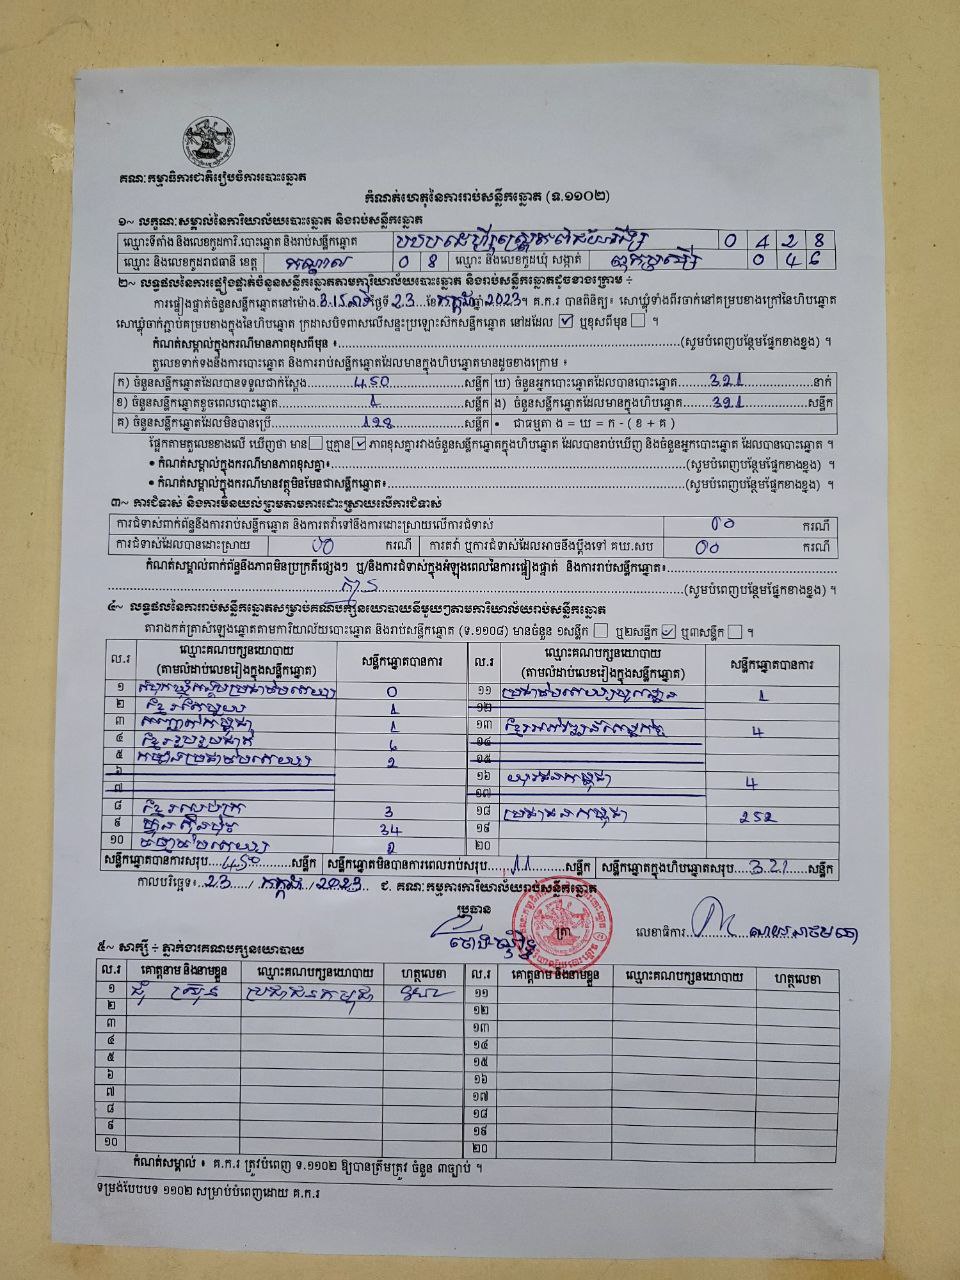 គណៈកម្មាធិការជាតិរៀបចំការបោះឆ្នោត
កំណត់ហេតុនៃការរាប់សន្លឹកឆ្នោត (ទ.១១០២)
១~ លក្ខណៈសម្គាល់នៃការិយាល័យបោះឆ្នោត និងរាប់សន្លឹកឆ្នោត
ឈ្មោះទីតាំង និងលេខកូដការិ.បោះឆ្នោត និងរាប់សន្លឹកឆ្នោត 0 4 2 8
ឈ្មោះ និងលេខកូដរាជធានី ខេត្ត កណ្តាល 0 8 ឈ្មោះ និងលេខកូដឃុំ សង្កាត់ 0 4 6
២~ លទ្ធផលនៃការផ្ទៀងផ្ទាត់ចំនួនសន្លឹកឆ្នោតតាមការិយាល័យបោះឆ្នោត និងរាប់សន្លឹកឆ្នោតដូចខាងក្រោម ÷
ការផ្ទៀងផ្ទាត់ចំនួនសន្លឹកឆ្នោតនៅម៉ោង 3:15 នាទី ថ្ងៃទី 23 ខែ កក្កដា ឆ្នាំ 2023 ។ គ.ក.រ បានពិនិត្យ៖ សោឃ្លុំទាំងពីរចាក់នៅគម្របខាងក្រៅនៃហិបឆ្នោត
សោឃ្លុំចាក់ភ្ជាប់គម្របខាងក្នុងនៃហិបឆ្នោត ក្រដាសបិទពាសលើសន្ទះប្រឡោះស៊កសន្លឹកឆ្នោត នៅដដែល ☑ ឬខុសពីមុន ☐ ។
កំណត់សម្គាល់ក្នុងករណីមានភាពខុសពីមុន ៖ (សូមបំពេញបន្ថែមផ្នែកខាងខ្នង) ។
តួលេខទាក់ទងនឹងការបោះឆ្នោត និងការរាប់សន្លឹកឆ្នោតដែលមានក្នុងហិបឆ្នោតមានដូចខាងក្រោម ៖
ក) ចំនួនសន្លឹកឆ្នោតដែលបានទទួលជាក់ស្តែង 450 សន្លឹក ឃ) ចំនួនអ្នកបោះឆ្នោតដែលបានបោះឆ្នោត 321 នាក់
ខ) ចំនួនសន្លឹកឆ្នោតខូចពេលបោះឆ្នោត 1 សន្លឹក ង) ចំនួនសន្លឹកឆ្នោតដែលមានក្នុងហិបឆ្នោត 321 សន្លឹក
គ) ចំនួនសន្លឹកឆ្នោតដែលមិនបានប្រើ 128 សន្លឹក • ជាធម្មតា ង = ឃ = ក - ( ខ + គ )
ផ្អែកតាមតួលេខខាងលើ ឃើញថា មាន ☐ ឬគ្មាន ☑ ភាពខុសគ្នារវាងចំនួនសន្លឹកឆ្នោតក្នុងហិបឆ្នោត ដែលបានរាប់ឃើញ និងចំនួនអ្នកបោះឆ្នោត ដែលបានបោះឆ្នោត ។
• កំណត់សម្គាល់ក្នុងករណីមានភាពខុសគ្នា៖ (សូមបំពេញបន្ថែមផ្នែកខាងខ្នង) ។
• កំណត់សម្គាល់ក្នុងករណីមានវត្ថុមិនមែនជាសន្លឹកឆ្នោត៖ (សូមបំពេញបន្ថែមផ្នែកខាងខ្នង) ។
៣~ ការជំទាស់ និងការមិនយល់ព្រមតាមការដោះស្រាយលើការជំទាស់
ការជំទាស់ពាក់ព័ន្ធនឹងការរាប់សន្លឹកឆ្នោត និងការតវ៉ាទៅនឹងការដោះស្រាយលើការជំទាស់ 00 ករណី
ការជំទាស់ដែលបានដោះស្រាយ 00 ករណី ការតវ៉ា ឬការជំទាស់ដែលអាចនឹងប្តឹងទៅ គឃ.សប 00 ករណី
កំណត់សម្គាល់ពាក់ព័ន្ធនឹងភាពមិនប្រក្រតីផ្សេងៗ ឬ/និងការជំទាស់ក្នុងអំឡុងពេលនៃការផ្ទៀងផ្ទាត់ និងការរាប់សន្លឹកឆ្នោត៖
គ្មាន (សូមបំពេញបន្ថែមផ្នែកខាងខ្នង) ។
៤~ លទ្ធផលនៃការរាប់សន្លឹកឆ្នោតសម្រាប់គណបក្សនយោបាយនីមួយៗតាមការិយាល័យរាប់សន្លឹកឆ្នោត
តារាងកត់ត្រាសំឡេងឆ្នោតតាមការិយាល័យបោះឆ្នោត និងរាប់សន្លឹកឆ្នោត (ទ.១១០៨) មានចំនួន ១សន្លឹក ☐ ឬ២សន្លឹក ☑ ឬ៣សន្លឹក ☐ ។
ល.រ ឈ្មោះគណបក្សនយោបាយ (តាមលំដាប់លេខរៀងក្នុងសន្លឹកឆ្នោត) សន្លឹកឆ្នោតបានការ ល.រ ឈ្មោះគណបក្សនយោបាយ (តាមលំដាប់លេខរៀងក្នុងសន្លឹកឆ្នោត) សន្លឹកឆ្នោតបានការ
១ សំបុកឃ្មុំសង្គមប្រជាធិបតេយ្យ 0 ១១ 1
២ ខ្មែរតែមួយ 1 ១២
៣ កញ្ញាតកម្ពុជា 1 ១៣ ខ្មែរអភិវឌ្ឍន៍សេដ្ឋកិច្ច 4
៤ ខ្មែររួបរួមជាតិ 6 ១៤
៥ កម្លាំងប្រជាធិបតេយ្យ 2 ១៥
៦ ១៦ យុវជនកម្ពុជា 4
៧ ១៧
៨ 3 ១៨ ប្រជាជនកម្ពុជា 252
៩ ហ៊្វុនស៊ិនប៉ិច 34 ១៩
១០ 2 ២០
សន្លឹកឆ្នោតបានការសរុប 450 សន្លឹក សន្លឹកឆ្នោតមិនបានការពេលរាប់សរុប 11 សន្លឹក សន្លឹកឆ្នោតក្នុងហិបឆ្នោតសរុប 321 សន្លឹក
កាលបរិច្ឆេទ៖ 23 / កក្កដា / 2023 ជ. គណៈកម្មការការិយាល័យរាប់សន្លឹកឆ្នោត
ប្រធាន
ត្រា លេខាធិការ
៥~ សាក្សី ÷ ភ្នាក់ងារគណបក្សនយោបាយ
ល.រ គោត្តនាម និងនាមខ្លួន ឈ្មោះគណបក្សនយោបាយ ហត្ថលេខា ល.រ គោត្តនាម និងនាមខ្លួន ឈ្មោះគណបក្សនយោបាយ ហត្ថលេខា
១ ប្រជាជនកម្ពុជា ១១
២ ១២
៣ ១៣
៤ ១៤
៥ ១៥
៦ ១៦
៧ ១៧
៨ ១៨
៩ ១៩
១០ ២០
កំណត់សម្គាល់ ៖ គ.ក.រ ត្រូវបំពេញ ទ.១១០២ ឱ្យបានត្រឹមត្រូវ ចំនួន ៣ច្បាប់ ។
ទម្រង់បែបបទ ១១០២ សម្រាប់បំពេញដោយ គ.ក.រ